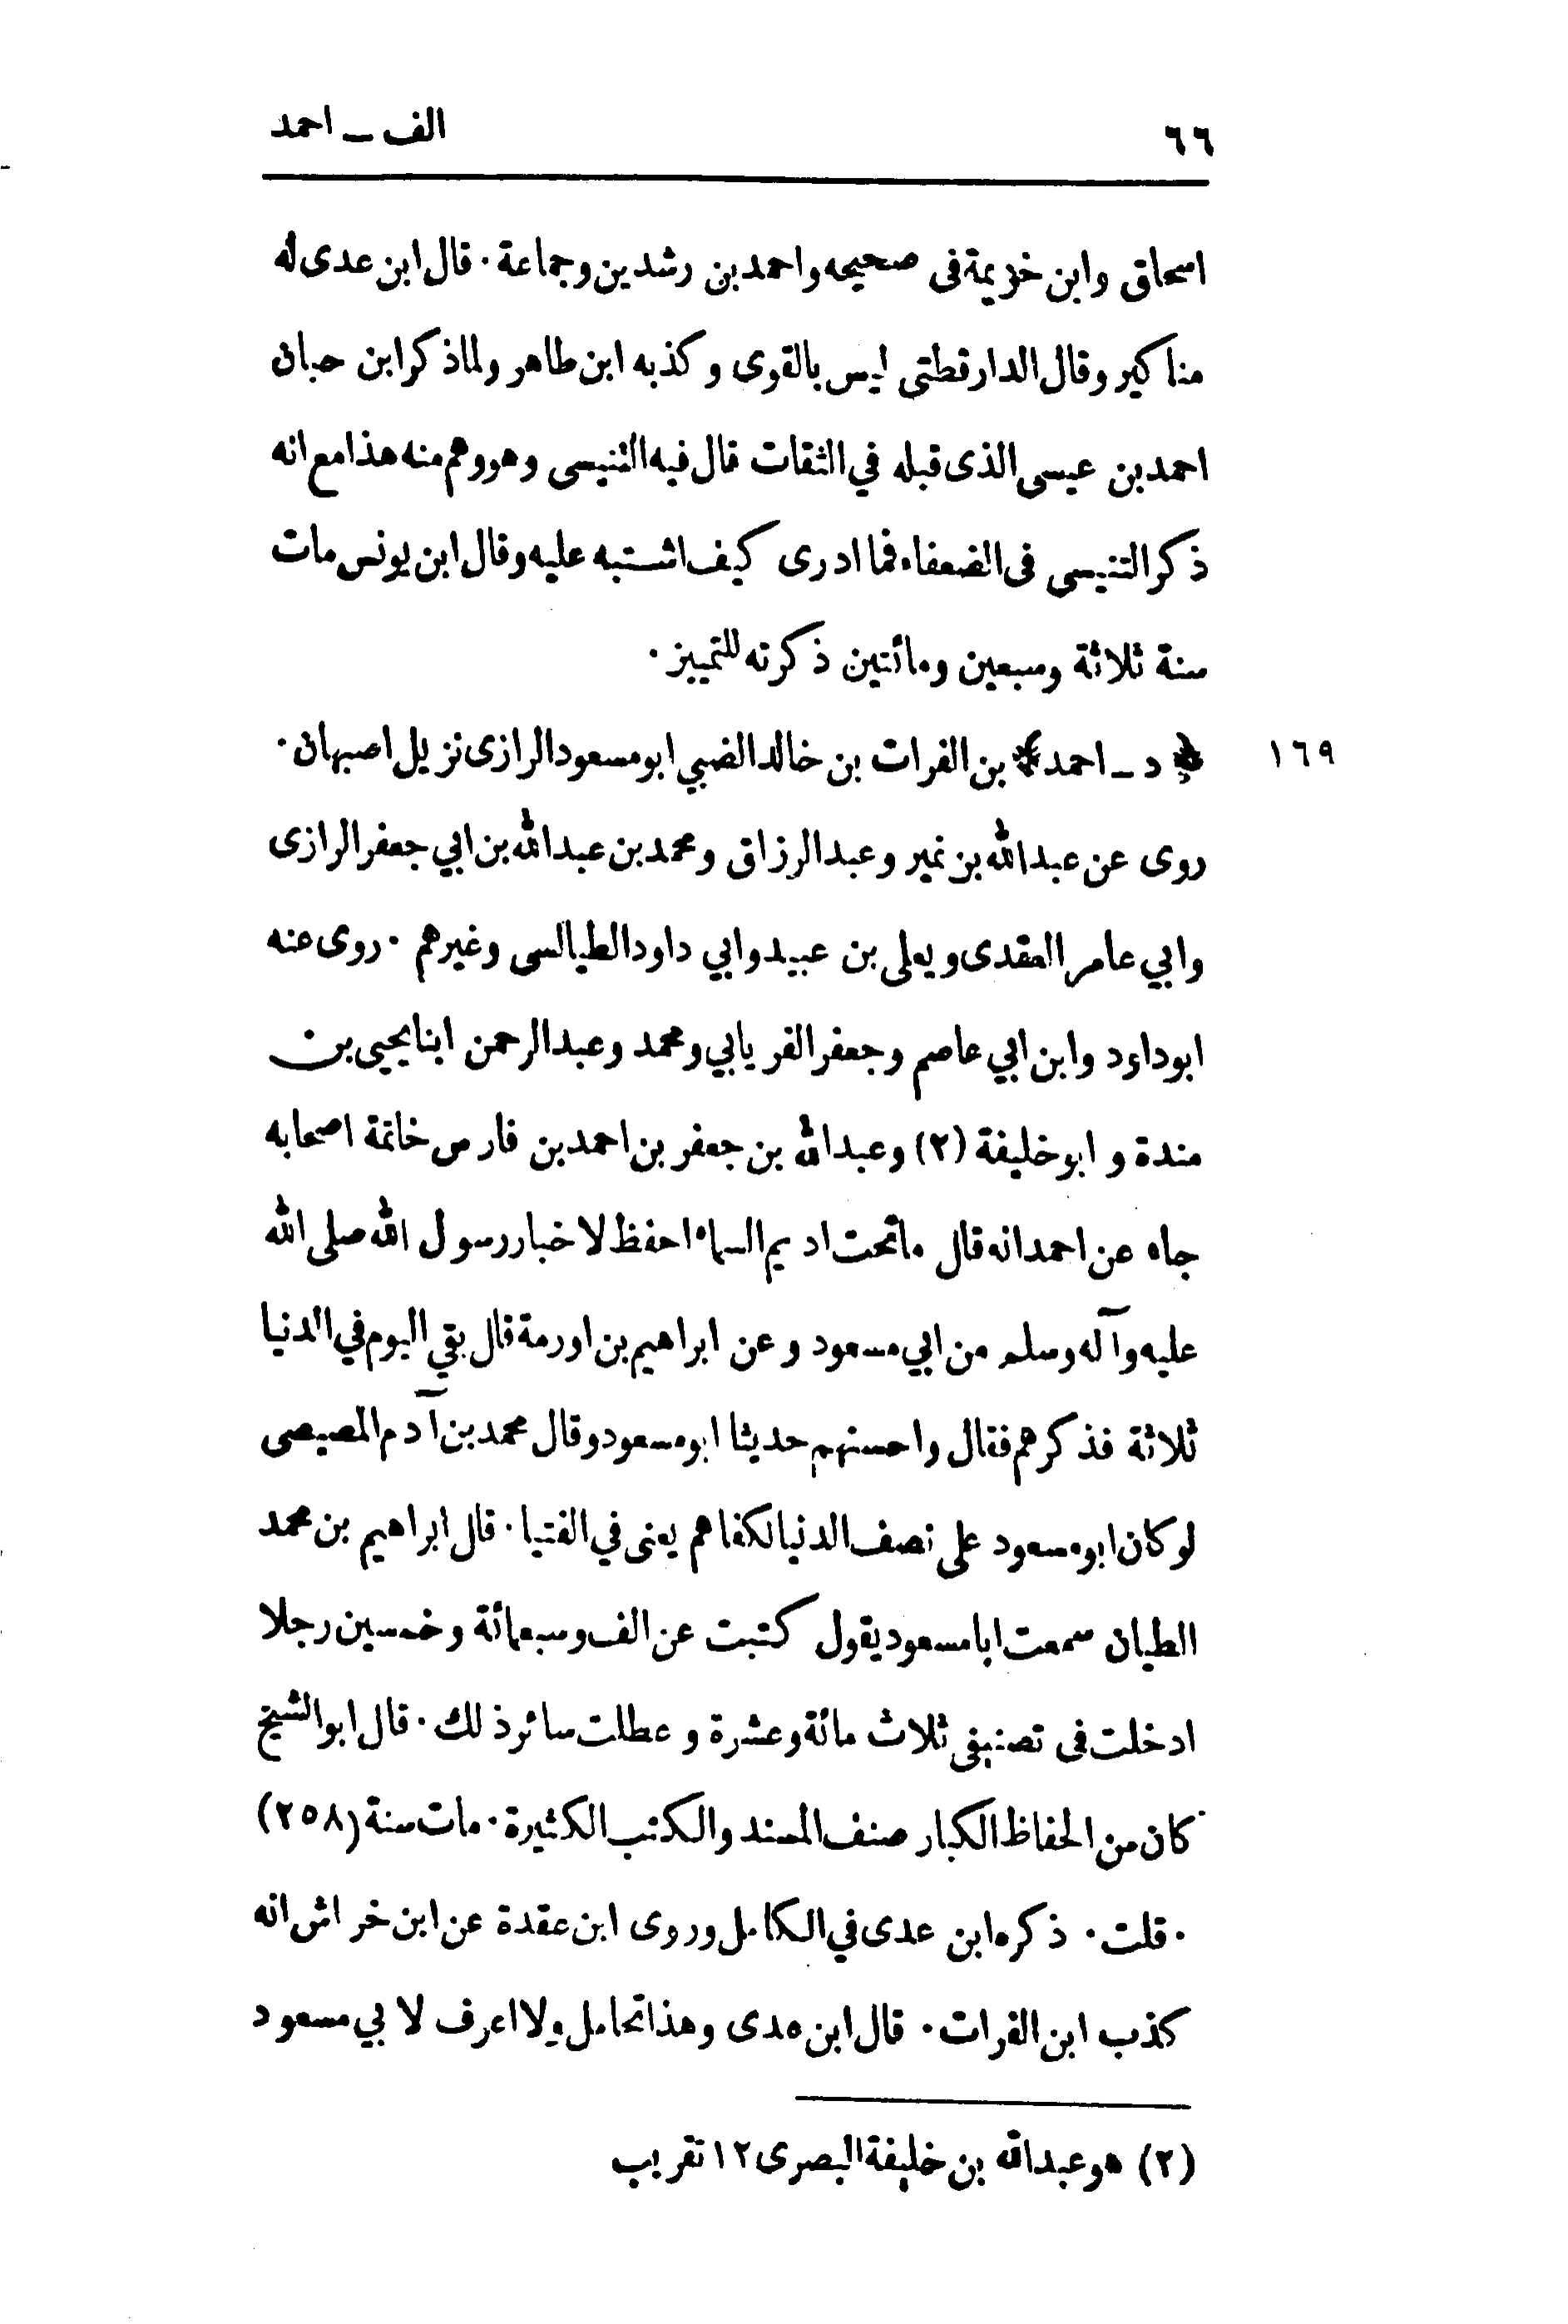 ٦٦
الف ــ احمد
اسحاق وابن خزيمة فى صحيحه واحمد بن رشدين وجماعة ٠ قال ابن عدى له
مناكير وقال الدارقطنى ليس بالقوى وكذبه ابن طاهر ولماذكر ابن حبان
احمد بن عيسى الذى قبله في الثقات قال فيه التنيسى وهو وهم منه هذا مع انه
ذكر التنيسى فى الضعفاء فما ادرى كيف اشتبه عليه وقال ابن يونس مات
سنة ثلاثة وسبعين ومائتين ذكرته للتمييز ٠
١٦٩ ﴿ د ــ احمد ﴾ بن الفرات بن خالد الضبي ابو مسعود الرازى نزيل اصبهان ٠
روى عن عبد الله بن نمير وعبد الرزاق ومحمد بن عبد الله بن ابي جعفر الرازى
وابي عامر العقدى ويعلى بن عبيد وابي داود الطيالسى وغيرهم ٠ روى عنه
ابوداود وابن ابي عاصم وجعفر الفريابي ومحمد وعبد الرحمن ابنا يحيى بن
مندة و ابو خليفة (٢) وعبد الله بن جعفر بن احمد بن فارس خاتمة اصحابه
جاء عن احمد انه قال ماتحت اديم السماء احفظ لاخبار رسول الله صلى الله
عليه وآله وسلم من ابي مسعود وعن ابراهيم بن اورمة قال بقي اليوم في الدنيا
ثلاثة فذكرهم فقال واحسنهم حديثا ابو مسعود وقال محمد بن آدم المصيصى
لو كان ابو مسعود على نصف الدنيا لكفاهم يعنى في الفتيا ٠ قال ابراهيم بن محمد
الطيان سمعت ابا مسعود يقول كتبت عن الف وسبعمائة وخمسين رجلا
ادخلت فى تصنيفى ثلاث مائة وعشرة و عطلت سائر ذلك ٠ قال ابو الشيخ
كان من الحفاظ الكبار صنف المسند والكتب الكثيرة ٠ مات سنة (٢٥٨)
٠ قلت ٠ ذكره ابن عدى في الكامل وروى ابن عقدة عن ابن خراش انه
كذب ابن الفرات ٠ قال ابن عدى وهذا تحامل ولا اعرف لابي مسعود
(٢) هو عبد الله بن خليفة البصرى ١٢ تقريب